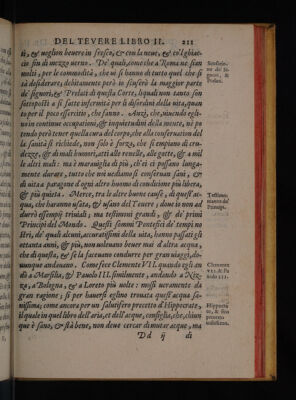 DEL TEVERE LIBRO II. 211
ti, & uoglion beuere in fresco, & con la neue, & co'l ghiac-
cio fin di mezzo uerno. De' quali, come che a Roma ne sian
molti, per le commodità, che ui si hanno di tutto quel che si
tà desiderare, debitamente però io scuserò la maggior parte
de' signori, & Prelati di questa Corte, liquali non tanto son
sottoposti a sì fatte infermità per li disordini della uita, quan
to per il poco essercitio, che fanno. Anzi, che uiuendo egli-
no in continue occupationi, & inquietudini della mente, nè po
tendo però tener quella cura del corpo, che alla conseruation del
la sanità si richiede, non solo è forza, che si empiano di cru-
dezze, & di mali humori, atti alle renelle, alle gotte, & a mil
le altri mali: ma è marauiglia di più, ch'ei si possano lunga-
mente durare, tutto che nel medesimo si conseruan sani, &
di uita a paragone d'ogni altro huomo di condition più libera,
& più quieta. Merce, tra le altre buone cause, di quest'ac-
qua, che haueano usata, & usano del Teuere; doue io non ad
durrò essempij triuiali; ma testimoni grandi, & de' primi
Principi del Mondo. Questi sommi Pontefici de' tempi no
stri, de' quali alcuni, accuratissimi della uita, hanno passati gli
ottanta anni, & più, non uoleuano beuer mai d'altra acqua,
che di questa, & se la faceuano condurre per gran uiaggi, do-
uunque andauano. Come fece Clemente VII. quando egli an
dò a Marsilia, & Pauolo III. similmente, andando a Niz-
za, a Bologna, & a Loreto più uolte: mossi ueramente da
gran ragione; si per hauersi eglino trouata quest'acqua sa-
nissima; come ancor per un salutifero precetto d'Hippocrate,
il quale in quel libro dell'aria, et dell'acque, consiglia, che, chiun
que è sano, & stà bene, non deue cercar di mutar acque, ma
Dd ij di
Scusatione de' Signori, & Prelati.
Testimonianza de' Principi.
Clemente VII. & Pauolo III.
Hippocrate, & suo precetto nobilissimo.